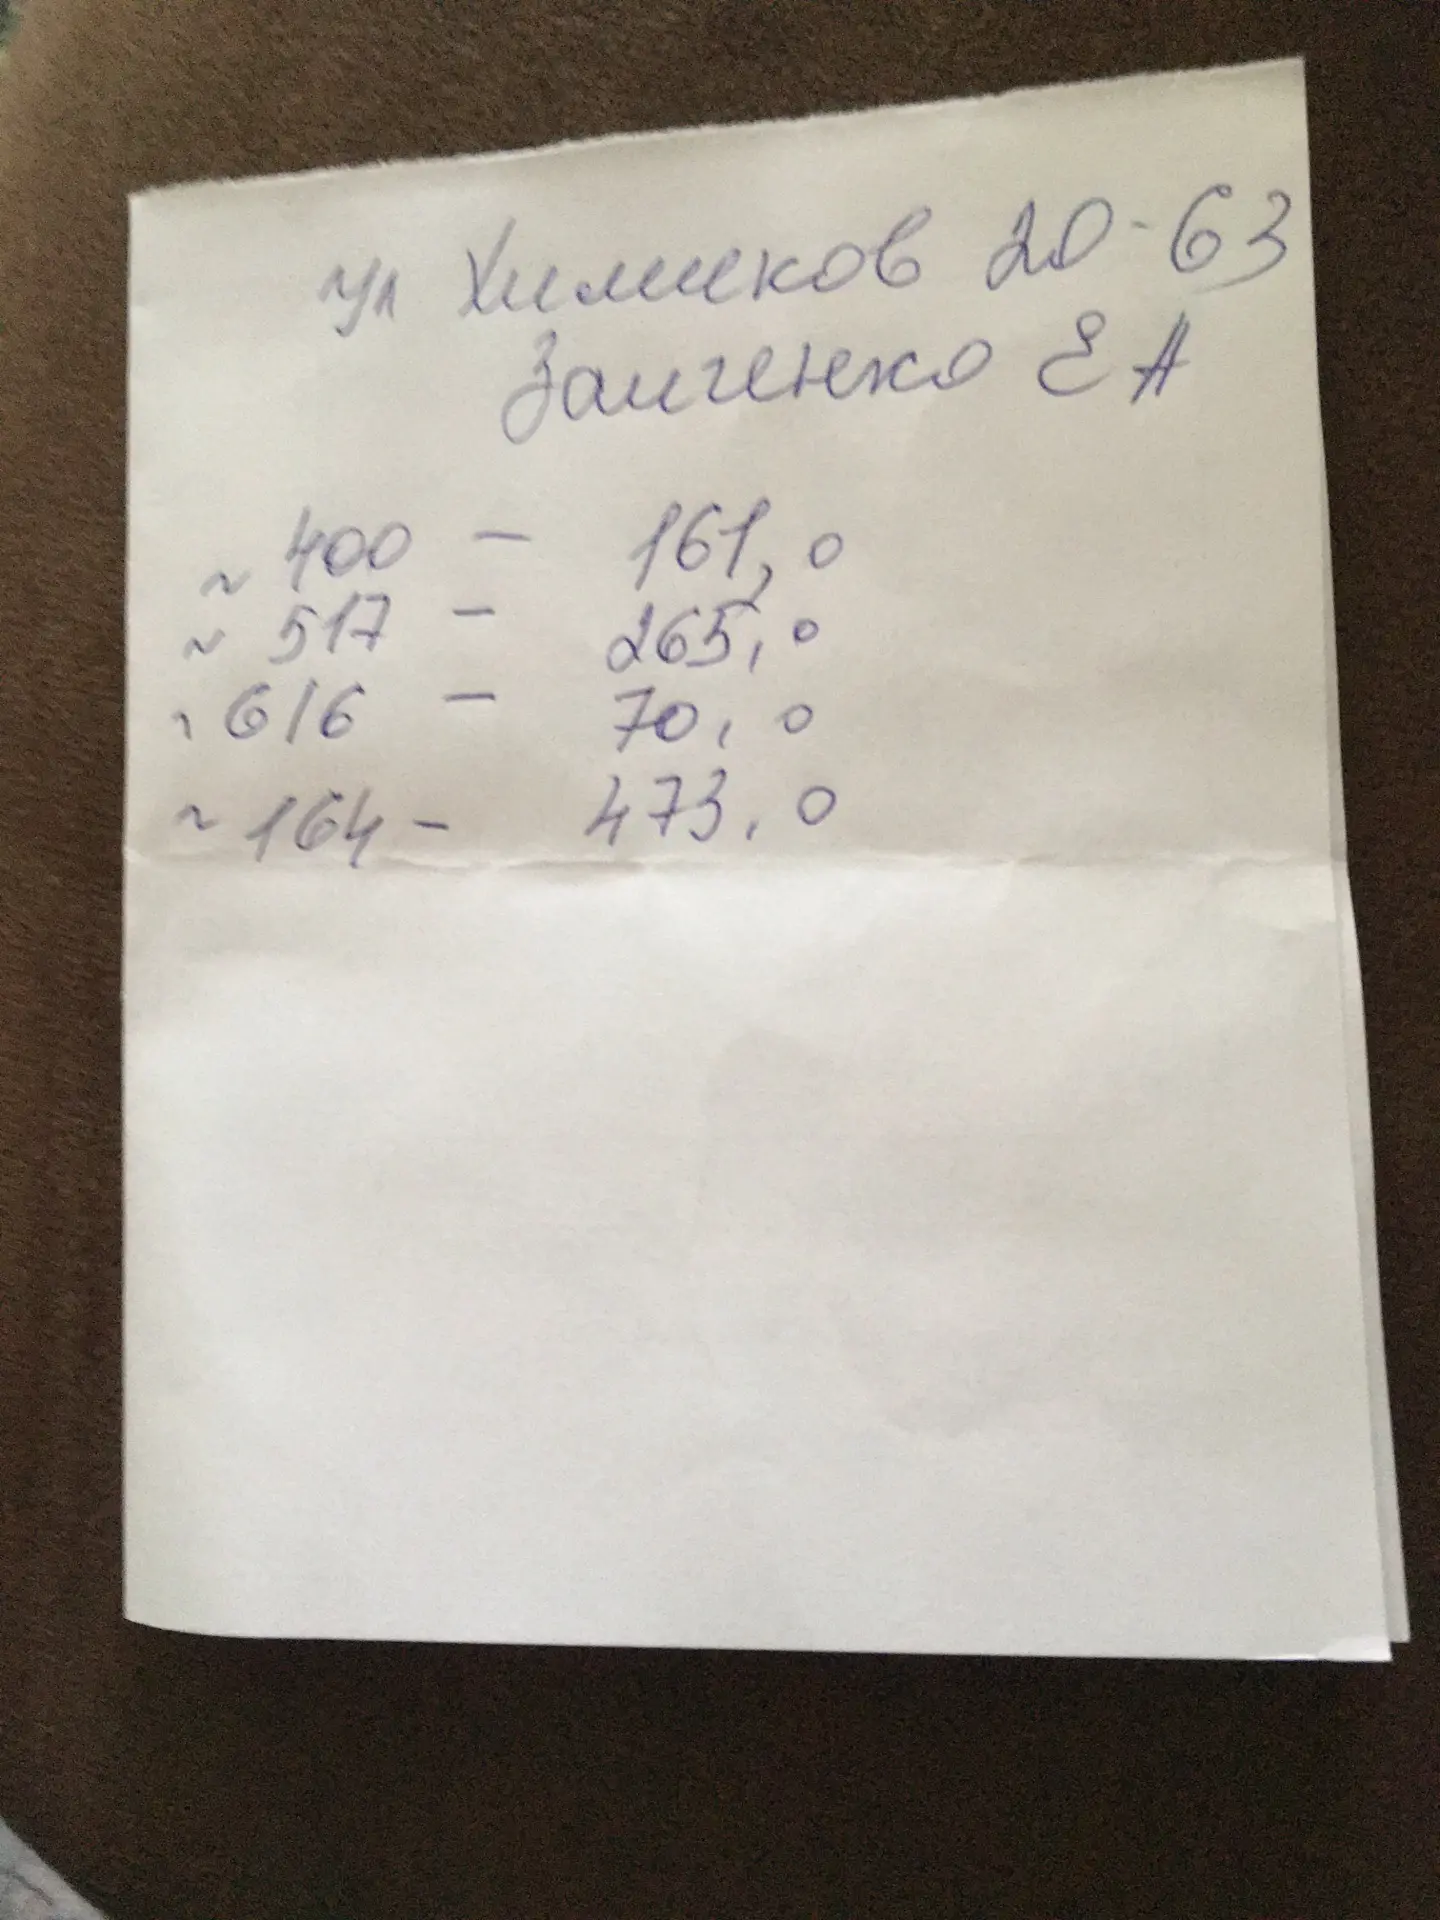 ул Химиков 20-63
Заиченко Е А
~ 400 - 161,0
~ 517 - 265,0
~ 616 - 70,0
~ 164 - 473,0